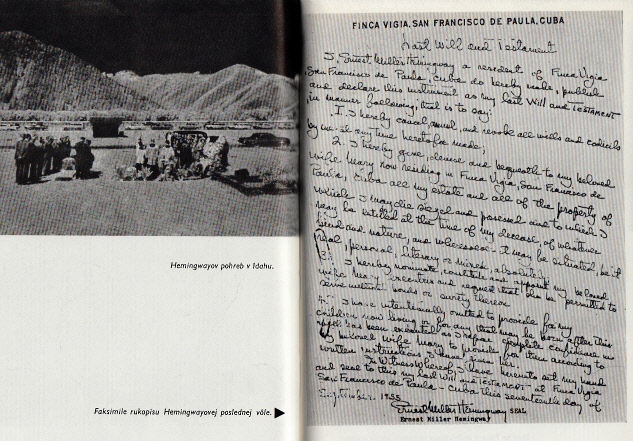 Hemingwayov pohreb v Idahu.
Faksimile rukopisu Hemingwayovej poslednej vôle.
FINCA VIGIA, SAN FRANCISCO DE PAULA, CUBA
Last Will and Testament
I, Ernest Miller Hemingway a resident of Finca Vigia
San Francisco de Paula, Cuba do hereby make, publish
and declare this instrument as my last Will and Testament
in manner following, that is to say:
I. I hereby cancel, annul, and revoke all wills and codicils
by me at any time heretofore made;
2. I hereby give, devise and bequeath to my beloved
wife Mary now residing in Finca Vigia, San Francisco de
Paula, Cuba all my estate and all of the property of
which I may die seized and possessed and to which I
may be entitled at the time of my decease, of whatever
kind and nature, and wheresoever it may be situated, be it
real, personal, literary or mixed, absolutely
3. I hereby nominate constitute and appoint my beloved
wife Mary, executrix and request that she be permitted to
serve without bonds or surety thereon
4. I have intentionally omitted to provide for my
children now living or for any that may be born after this
will has been executed as I repose complete confidence in
my beloved wife Mary to provide for them according to
written instructions I have given her.
In Witness Whereof, I have hereunto set my hand
and seal to this my last Will and Testament at Finca Vigia
San Francisco de Paula Cuba this seventeenth day of
September, 1955
Ernest Miller Hemingway SEAL
Ernest Miller Hemingway